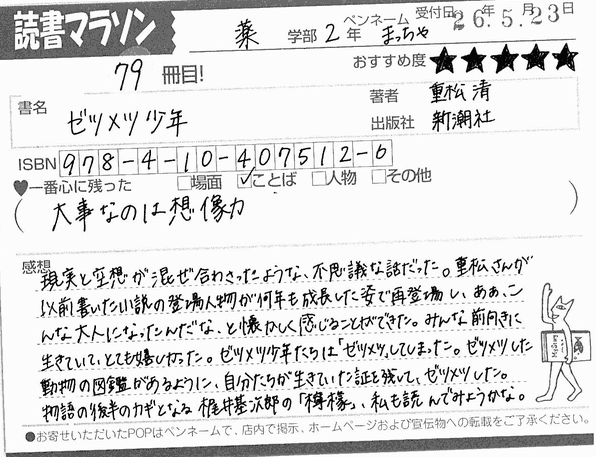 読書マラソン 薬 学部2年 ペンネーム まっちゃ 受付日 26年5月23日
79 冊目! おすすめ度 ★★★★★
書名 ゼツメツ少年
著者 重松 清
出版社 新潮社
ISBN 978-4-10-407512-6
♥一番心に残った □場面 ☑ことば □人物 □その他
(大事なのは想像力)
感想
現実と空想が混ぜ合わさったような、不思議な話だった。重松さんが
以前書いた小説の登場人物が何年も成長した姿で再登場し、ああ、こ
んな大人になったんだな、と懐かしく感じることができた。みんな前向きに
生きていて、とても嬉しかった。ゼツメツ少年たちは「ゼツメツ」してしまった。ゼツメツした
動物の図鑑があるように、自分たちが生きていた証を残して、ゼツメツした。
物語の後半のカギとなる梶井基次郎の「檸檬」、私も読んでみようかな。
●お寄せいただいたPOPはペンネームで、店内で掲示、ホームページおよび宣伝物への転載をご了承ください。